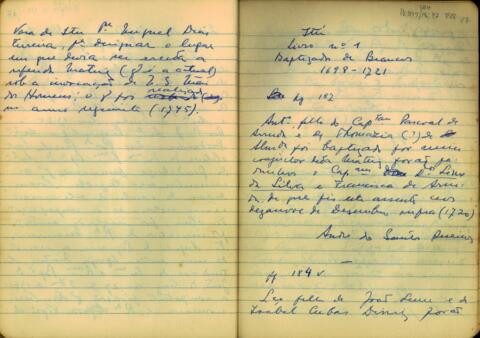 Vara de Itu Pe. Miguel Dias
Ferreira, pa. designar o lugar
em que devia ser erecta a
referida Matriz (q. é a actual)
sob a invocação de N. S. Mãe
do Homens; o q. foi realizado
no anno seguinte (1745).
Itú
Livro nº 1
Baptizados de Brancos
1698-1721
pg 182
Antº. filho do Capitam Pascoal de
Arruda e de Thomazia (?) de
Alm foi baptizado por meu
coajutor nesta Matriz forão pa
drinhos o Capitam
da Silva e Francisca de Arru
da, de que fis este assento aos
dezanove de Dezembro supra (1720)
André dos Santos Queiros
—
ff 184 v.
filho de João Leme e de
Izabel Cubas forão